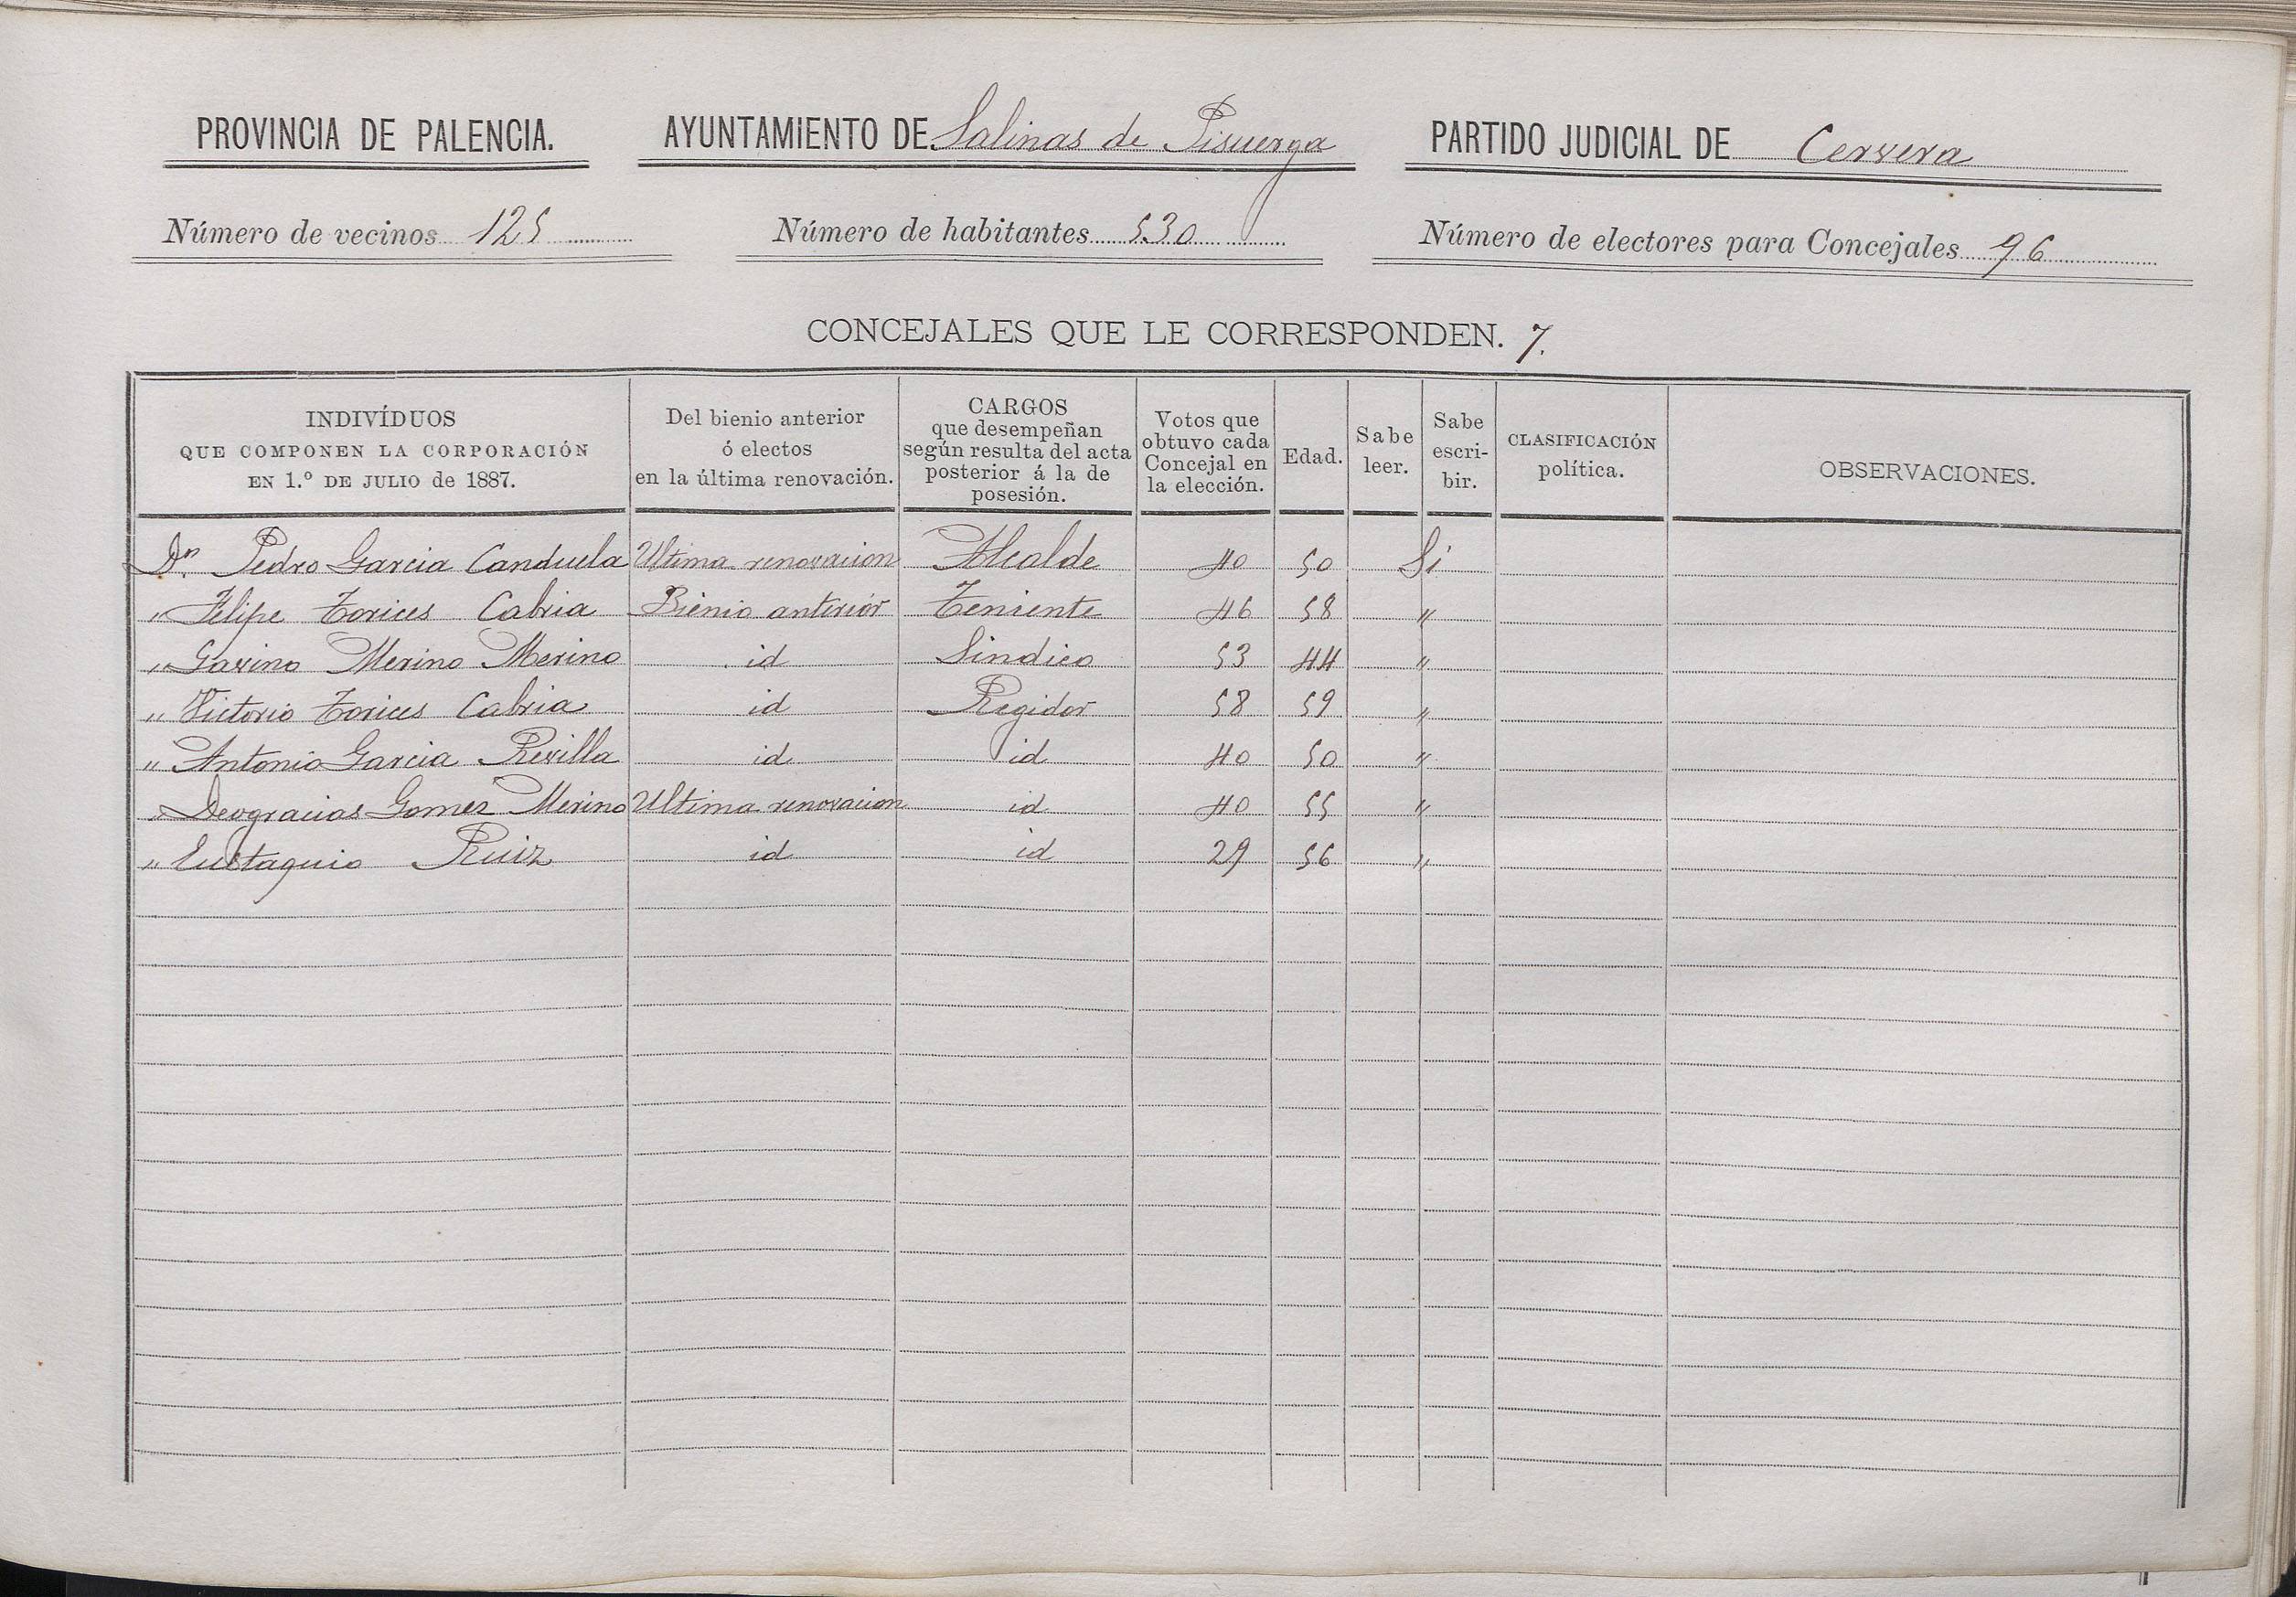 PROVINCIA DE PALENCIA. AYUNTAMIENTO DE Salinas de Pisuerga PARTIDO JUDICIAL DE Cervera
Número de vecinos 125 Número de habitantes 530 Número de electores para Concejales 96
CONCEJALES QUE LE CORRESPONDEN. 7.
INDIVÍDUOS
QUE COMPONEN LA CORPORACIÓN
EN 1.º DE JULIO de 1887.
Del bienio anterior
ó electos
en la última renovación.
CARGOS
que desempeñan
según resulta del acta
posterior á la de
posesión.
Votos que
obtuvo cada
Concejal en
la elección.
Edad.
Sabe
leer.
Sabe
escri-
bir.
CLASIFICACIÓN
política.
OBSERVACIONES.
Dn. Pedro Garcia Canduela Ultima renovacion Alcalde 40 50 Si
" Felipe Torices Cabria Bienio anterior Teniente 46 58 "
" Gavino Merino Merino id Sindico 53 44 "
" Victorio Torices Cabria id Regidor 58 59 "
" Antonio Garcia Revilla id id 40 50 "
" Deogracias Gomez Merino Ultima renovacion id 40 55 "
" Eustaquio Ruiz id id 29 56 "